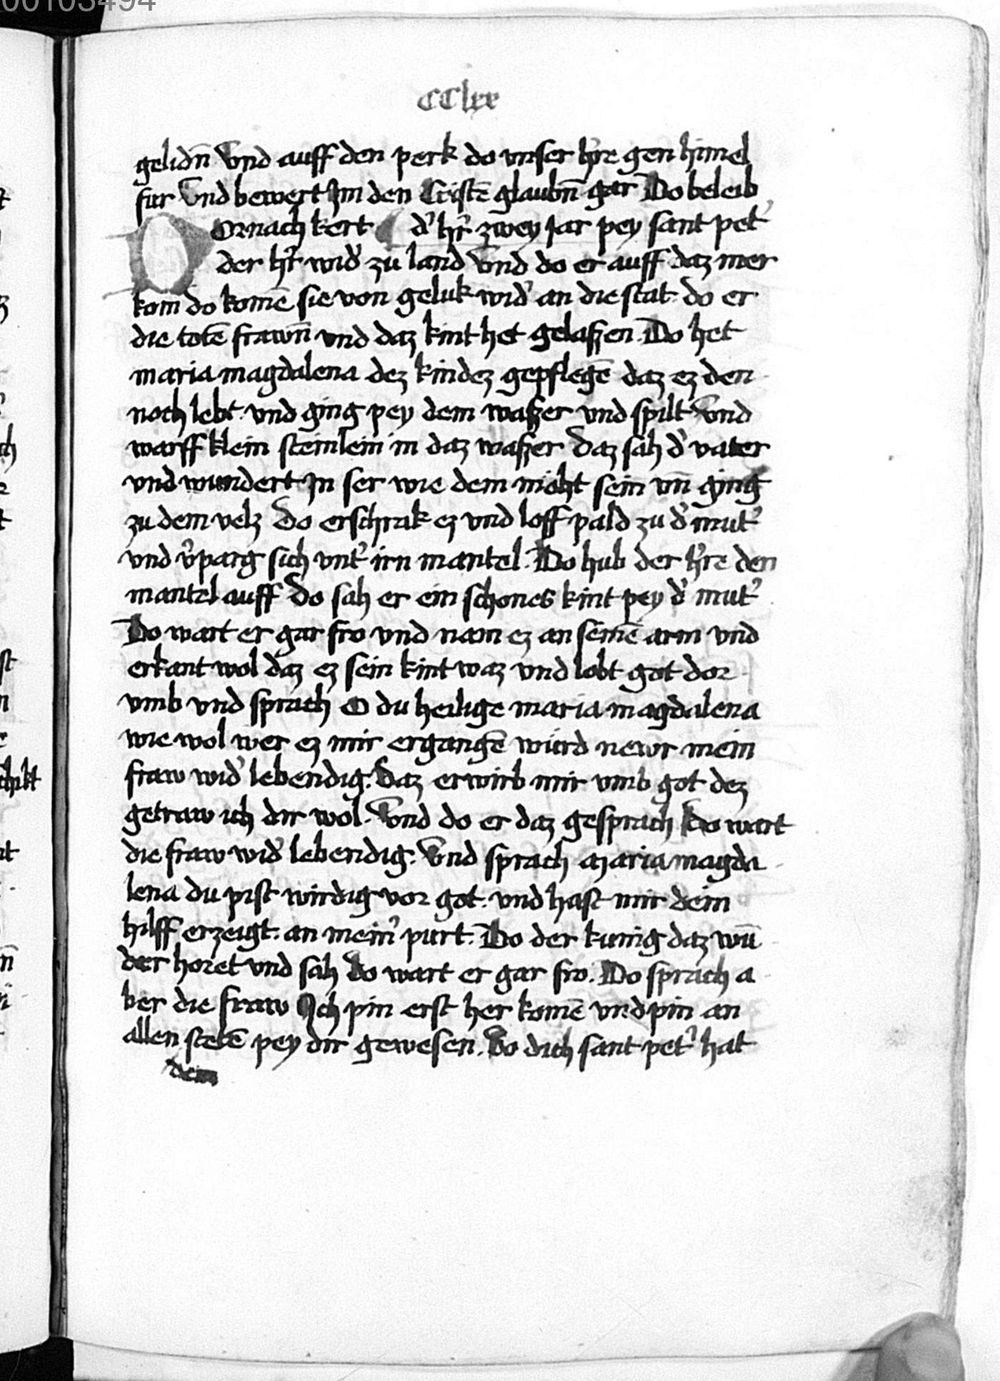 00103494
CClxx
gelidn̄ Vnd auff den perk do vnser h̓re gen himel
fur Vnd bewert Jm den Cristē glaubn̄ gar Do beleib
Dornach kert d̓ h̓r zwey jar pey sant pet̓
der h̓r wid̓ zu land Vnd do er auff daz mer
kom do komē sie von geluk wid̓ an die stat do er
die totē frawn̄ vnd daz kint het gelaszen. Do het
maria magdalena dez kindez gepflegē daz ez den
noch lebt vnd ging pey dem waszer vnd spilt Vnd
warff klein steinlein in daz waszer Daz sah d̓ vater
vnd wundert Jn ser wie dem mőht sein vn̄ ging
zu dem velz Do erschrak ez vnd loff pald zu d̓ mut̓
vnd v̓parg sich vnt̓ irn mantel. Do hub der h̓re den
mantel auff Do sah er ein schones kint pey d̓ mut̓
Do wart er gar fro vnd nam ez an seinē arm vnd
erkant wol daz ez sein kint waz vnd lobt got dor
vmb vnd sprach O du heilige maria magdalena
wie wol wer ez mir ergangē würd newr mein
fraw wid̓ lebendig. Daz erwirb mir vmb got dez
getraw ich dir wol. Vnd do er daz gesprach Do wart
die fraw wid̓ lebendig. Vnd sprach maria magda
lena du pist wirdig vor got. vnd hast mir dein
hilff erzeigt. an mein̓ purt. Do der kunig daz wū
der horet vnd sah Do wart er gar fro. Do sprach a
ber die fraw Ich pin erst her komē vnd pin an
allen stetē pey dir gewesen. Do dich sant pet̓ hat
dein